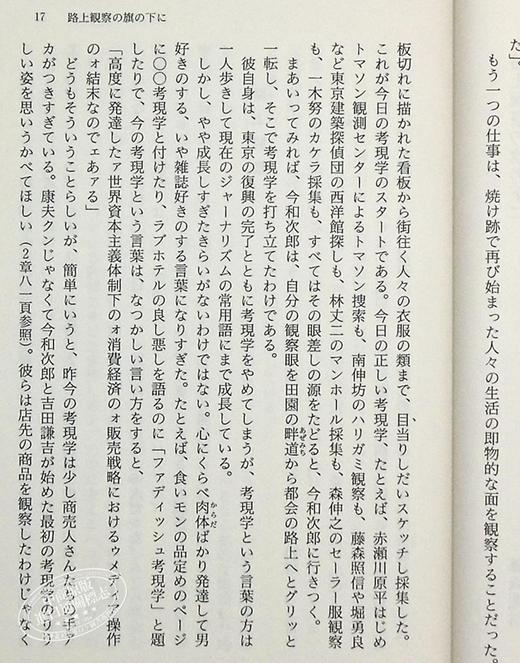 た」。
もう一つの仕事は、焼け跡で再び始まった人々の生活の即物的な面を観察することだった。
17 路上観察の旗の下に
板切れに描かれた看板から街往く人々の衣服の類まで、目当りしだいスケッチし採集した。
これが今日の考現学のスタートである。今日の正しい考現学、たとえば、赤瀬川原平はじめ
トマソン観測センターによるトマソン捜索も、南伸坊のハリガミ観察も、藤森照信や堀勇良
など東京建築探偵団の西洋館探しも、林丈二のマンホール採集も、森伸之のセーラー服観察
も、一木努のカケラ採集も、すべてはその眼差しの源をたどると、今和次郎に行きつく。
まあいってみれば、今和次郎は、自分の観察眼を田園の畔道あぜみちから都会の路上へとグリッと
一転し、そこで考現学を打ち立てたわけである。
彼自身は、東京の復興の完了とともに考現学をやめてしまうが、考現学という言葉の方は
一人歩きして現在のジャーナリズムの常用語にまで成長している。
しかし、やや成長しすぎたきらいがないわけではない。心にくらべ肉体からだばかり発達して男
好きのする、いや雑誌好きのする言葉になりすぎた。たとえば、食いモンの品定めのページ
に〇〇考現学と付けたり、ラブホテルの良し悪しを語るのに「ファディッシュ考現学」と題
したりで、今の考現学という言葉は、なつかしい言い方をすると、
「高度に発達したァ世界資本主義体制下のォ消費経済のォ販売戦略におけるゥメディア操作
のォ結末なのでェあァる」
どうもそういうことらしいが、簡単にいうと、昨今の考現学は少し商売人さんたちの手ア
カがつきすぎている。康夫クンじゃなくて今和次郎と吉田謙吉が始めた最初の考現学のりり
しい姿を思いうかべてほしい（2章八一頁参照）。彼らは店先の商品を観察したわけじゃなく